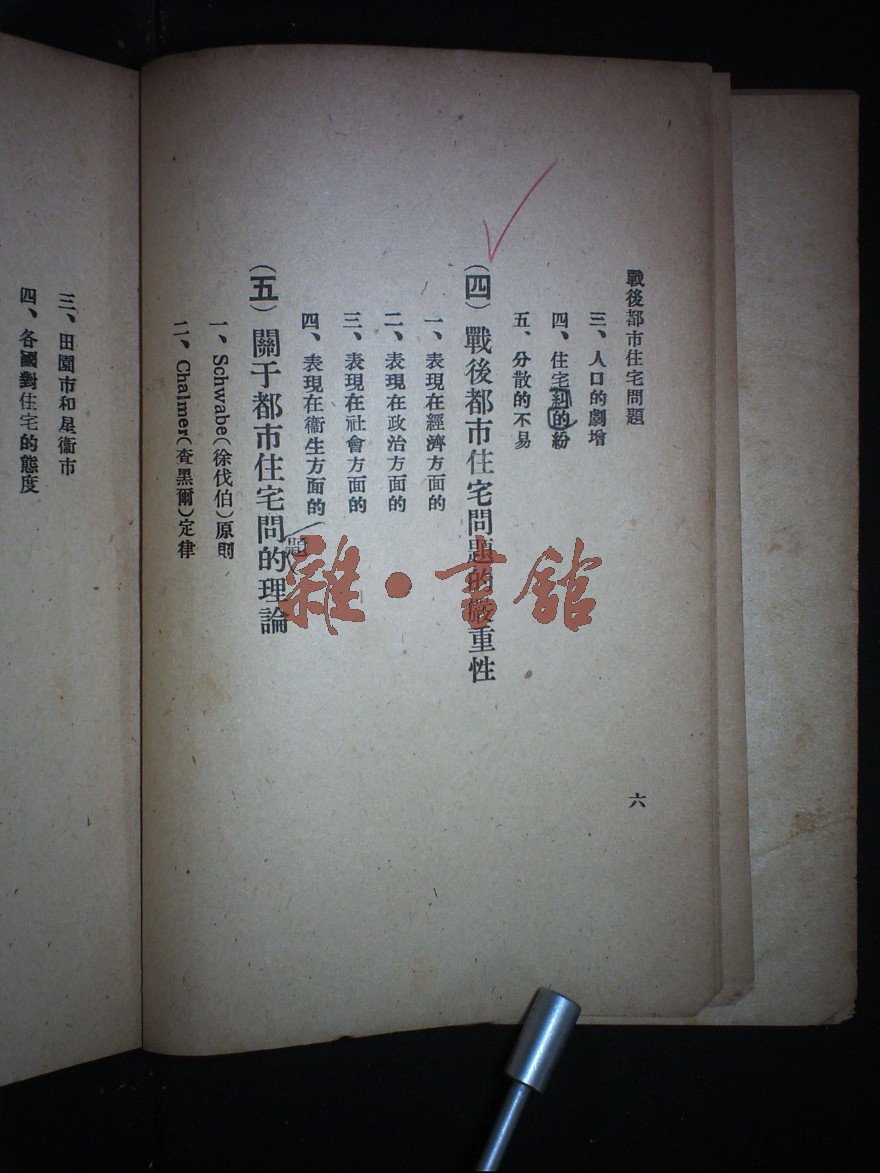 戰後都市住宅問題
六
三、人口的劇增
四、住宅糾的紛
五、分散的不易
(四)戰後都市住宅問題的嚴重性
一、表現在經濟方面的
二、表現在政治方面的
三、表現在社會方面的
四、表現在衞生方面的
(五)關于都市住宅問的理論
題
一、Schwabe(徐伐伯)原則
二、Chalmer(查黑爾)定律
三、田園市和星衞市
四、各國對住宅的態度
雜·書館